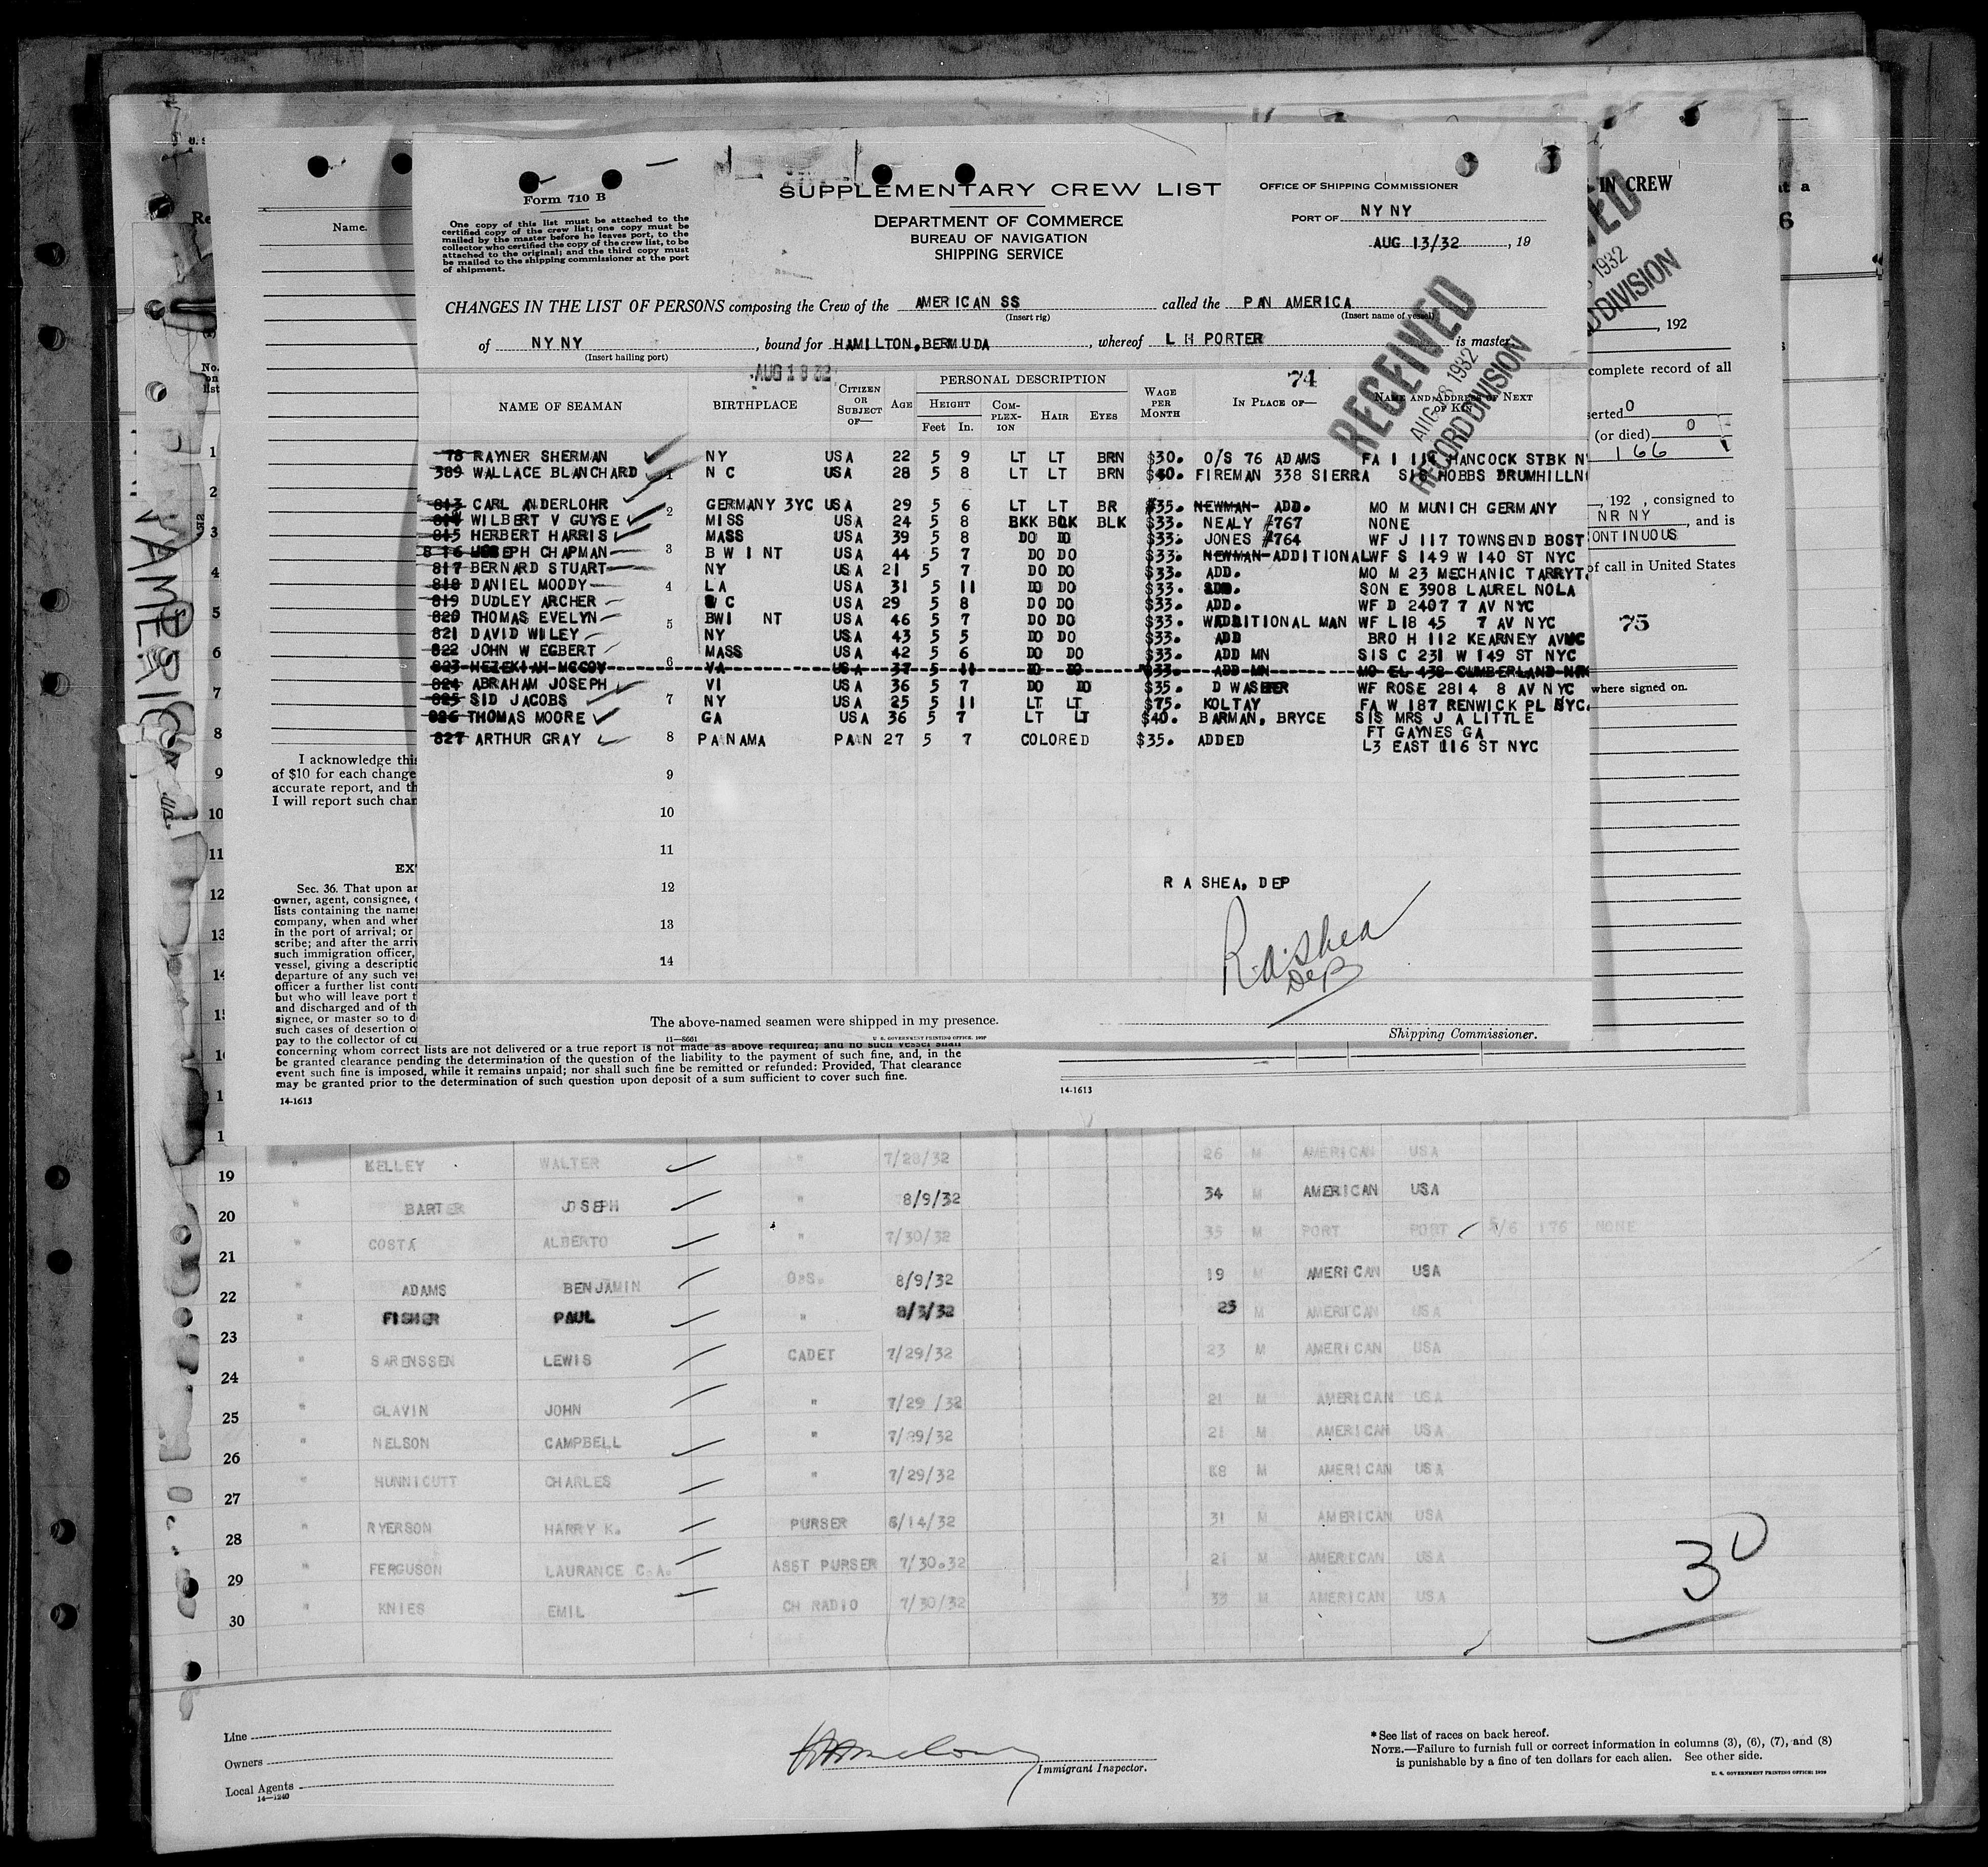 Form 710 B
One copy of this list must be attached to the
certified copy of the crew list; one copy must be
mailed by the master before he leaves port, to the
collector who certified the copy of the crew list, to be
attached to the original; and the third copy must
be mailed to the shipping commissioner at the port
of shipment.
SUPPLEMENTARY CREW LIST
DEPARTMENT OF COMMERCE
BUREAU OF NAVIGATION
SHIPPING SERVICE
OFFICE OF SHIPPING COMMISSIONER
PORT OF NY NY
AUG 13/32, 19
CHANGES IN THE LIST OF PERSONS composing the Crew of the AMERICAN SS called the PAN AMERICA
(Insert rig) (Insert name of vessel)
of NY NY, bound for HAMILTON, BERMUDA, whereof L H PORTER is master
(Insert hailing port)
AUG 18 32
74
RECEIVED
AUG 1932
RECORD DIVISION
NAME OF SEAMAN BIRTHPLACE CITIZEN OR SUBJECT OF— AGE PERSONAL DESCRIPTION HEIGHT Feet In. COMPLEXION HAIR EYES WAGE PER MONTH IN PLACE OF— NAME AND ADDRESS OF NEXT OF KIN
78 RAYNER SHERMAN NY USA 22 5 9 LT LT BRN $30. O/S 76 ADAMS FA I 114 HANCOCK STBK N
389 WALLACE BLANCHARD 1 N C USA 28 5 8 LT LT BRN $40. FIREMAN 338 SIERRA SIS HOBBS DRUMHILLN
813 CARL ANDERLOHR 2 GERMANY 3YC USA 29 5 6 LT LT BR $35. NEWMAN- ADD. MO M MUNICH GERMANY
814 WILBERT V GUYSE MISS USA 24 5 8 BKK BLK BLK $33. NEALY #767 NONE
815 HERBERT HARRIS MASS USA 39 5 8 DO DO $33. JONES #764 WF J 117 TOWNSEND BOST
816 JOSEPH CHAPMAN 3 B W I NT USA 44 5 7 DO DO $33. NEWMAN-ADDITIONAL WF S 149 W 140 ST NYC
817 BERNARD STUART NY USA 21 5 7 DO DO $33. ADD. MO M 23 MECHANIC TARRYT.
818 DANIEL MOODY 4 LA USA 31 5 11 DO DO $33. ADD. SON E 3908 LAUREL NOLA
819 DUDLEY ARCHER C USA 29 5 8 DO DO $33. ADD. WF D 2407 7 AV NYC
820 THOMAS EVELYN 5 BWI NT USA 46 5 7 DO DO $33. WADDITIONAL MAN WF L18 45 7 AV NYC
821 DAVID WILEY NY USA 43 5 5 DO DO $33. ADD BRO H 112 KEARNEY AV
822 JOHN W EGBERT MASS USA 42 5 6 DO DO $33. ADD MN SIS C 231 W 149 ST NYC
823 HEZEKIAH MCCOY 6 VA USA 37 5 11 DO DO $33. ADD MN MO EL 438 CUMBERLAND
824 ABRAHAM JOSEPH VI USA 36 5 7 DO DO $35. D WASHER WF ROSE 2814 8 AV NYC
825 SID JACOBS 7 NY USA 25 5 11 LT LT $75. KOLTAY FA W 187 RENWICK PL NYC.
826 THOMAS MOORE GA USA 36 5 7 LT LT $40. BARMAN, BRYCE SIS MRS J A LITTLE
FT GAYNES GA
827 ARTHUR GRAY 8 PANAMA PAN 27 5 7 COLORED $35. ADDED L3 EAST 116 ST NYC
9
10
11
12
13
14
R A SHEA, DEP
R.A. Shea
Dep
The above-named seamen were shipped in my presence.
Shipping Commissioner.
11—8661 U. S. GOVERNMENT PRINTING OFFICE
Name.
I acknowledge this
of $10 for each change
accurate report, and th
I will report such chan
EX
Sec. 36. That upon ar
owner, agent, consignee,
lists containing the name
company, when and wher
in the port of arrival; or
scribe; and after the arriv
such immigration officer,
vessel, giving a descriptio
departure of any such ves
officer a further list conta
but who will leave port t
and discharged and of th
signee, or master so to d
such cases of desertion o
pay to the collector of cu
concerning whom correct lists are not delivered or a true report is not made as above required; and no such vessel shall
be granted clearance pending the determination of the question of the liability to the payment of such fine, and, in the
event such fine is imposed, while it remains unpaid; nor shall such fine be remitted or refunded: Provided, That clearance
may be granted prior to the determination of such question upon deposit of a sum sufficient to cover such fine.
14-1613
14-1613
IN CREW
1932
D DIVISION
, 192
complete record of all
serted 0
(or died) 0
166
, 192 , consigned to
NR NY, and is
ONTINUOUS
of call in United States
75
where signed on.
19 " KELLEY WALTER " 7/28/32 26 M AMERICAN USA
20 " BARTER JOSEPH " 8/9/32 34 M AMERICAN USA
21 " COSTA ALBERTO " 7/30/32 35 M PORT PORT 5/6 176 NONE
22 " ADAMS BENJAMIN O.S. 8/9/32 19 M AMERICAN USA
23 " FISHER PAUL " 8/3/32 23 M AMERICAN USA
24 " SARENSSEN LEWIS CADET 7/29/32 23 M AMERICAN USA
25 " GLAVIN JOHN " 7/29/32 21 M AMERICAN USA
26 " NELSON CAMPBELL " 7/29/32 21 M AMERICAN USA
27 " HUNNICUTT CHARLES " 7/29/32 M AMERICAN USA
28 " RYERSON HARRY K. PURSER 6/14/32 31 M AMERICAN USA
29 " FERGUSON LAURANCE C.A. ASST PURSER 7/30.32 21 M AMERICAN USA
30 " KNIES EMIL CH RADIO 7/30/32 33 M AMERICAN USA
30
Line
Owners
Local Agents
14—1240
Immigrant Inspector.
*See list of races on back hereof.
NOTE.—Failure to furnish full or correct information in columns (3), (6), (7), and (8)
is punishable by a fine of ten dollars for each alien. See other side.
U. S. GOVERNMENT PRINTING OFFICE: 1929